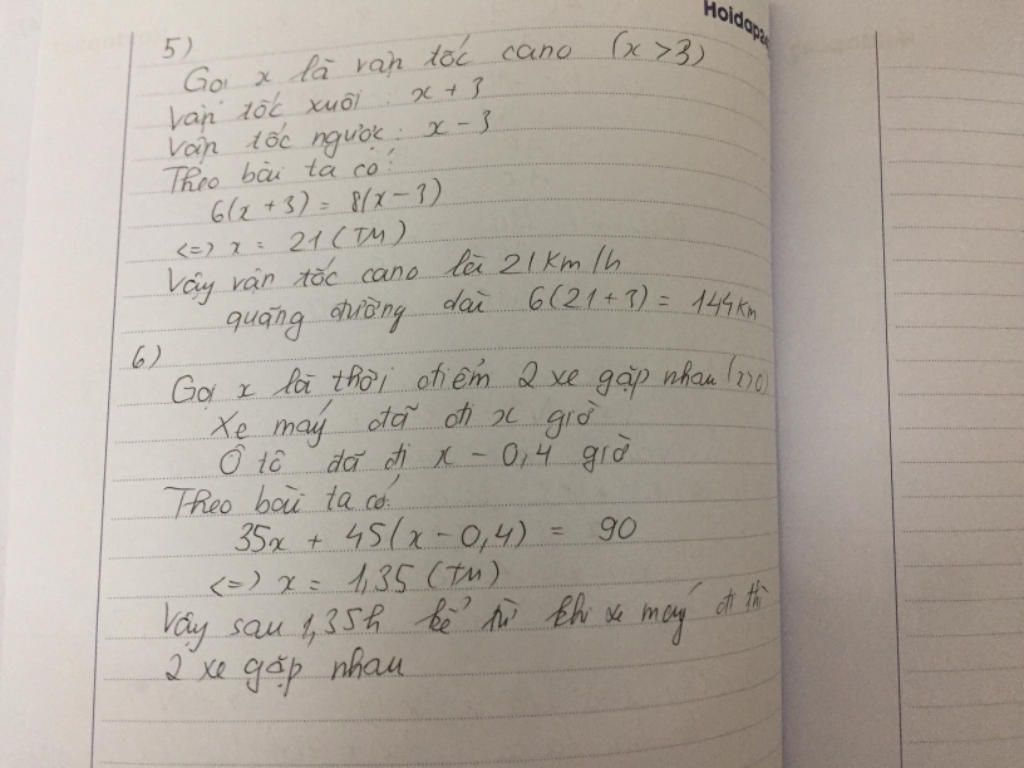 Hoidap24
5)
Gọi x là vận tốc cano (x > 3)
Vận tốc xuôi : x + 3
Vận tốc ngược : x - 3
Theo bài ta có:
6(x + 3) = 8(x - 3)
<=> x = 21 (TM)
Vậy vận tốc cano là 21 km/h
quãng đường dài 6(21 + 3) = 144 km
6)
Gọi x là thời điểm 2 xe gặp nhau (x>0)
Xe máy đã đi x giờ
Ô tô đã đi x - 0,4 giờ
Theo bài ta có:
35x + 45(x - 0,4) = 90
<=> x = 1,35 (TM)
Vậy sau 1,35h kể từ khi xe máy đi thì
2 xe gặp nhau